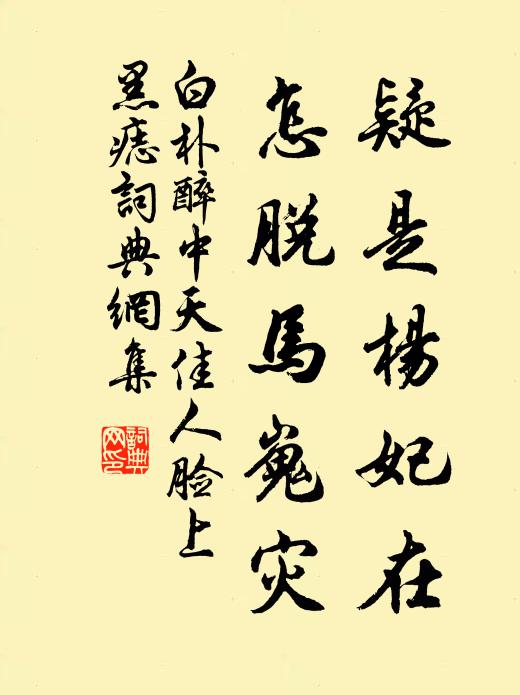 疑是楊妃在
怎脱馬嵬灾
白朴醉中天佳人脸上
黑痣詞典網集
詞典
网印